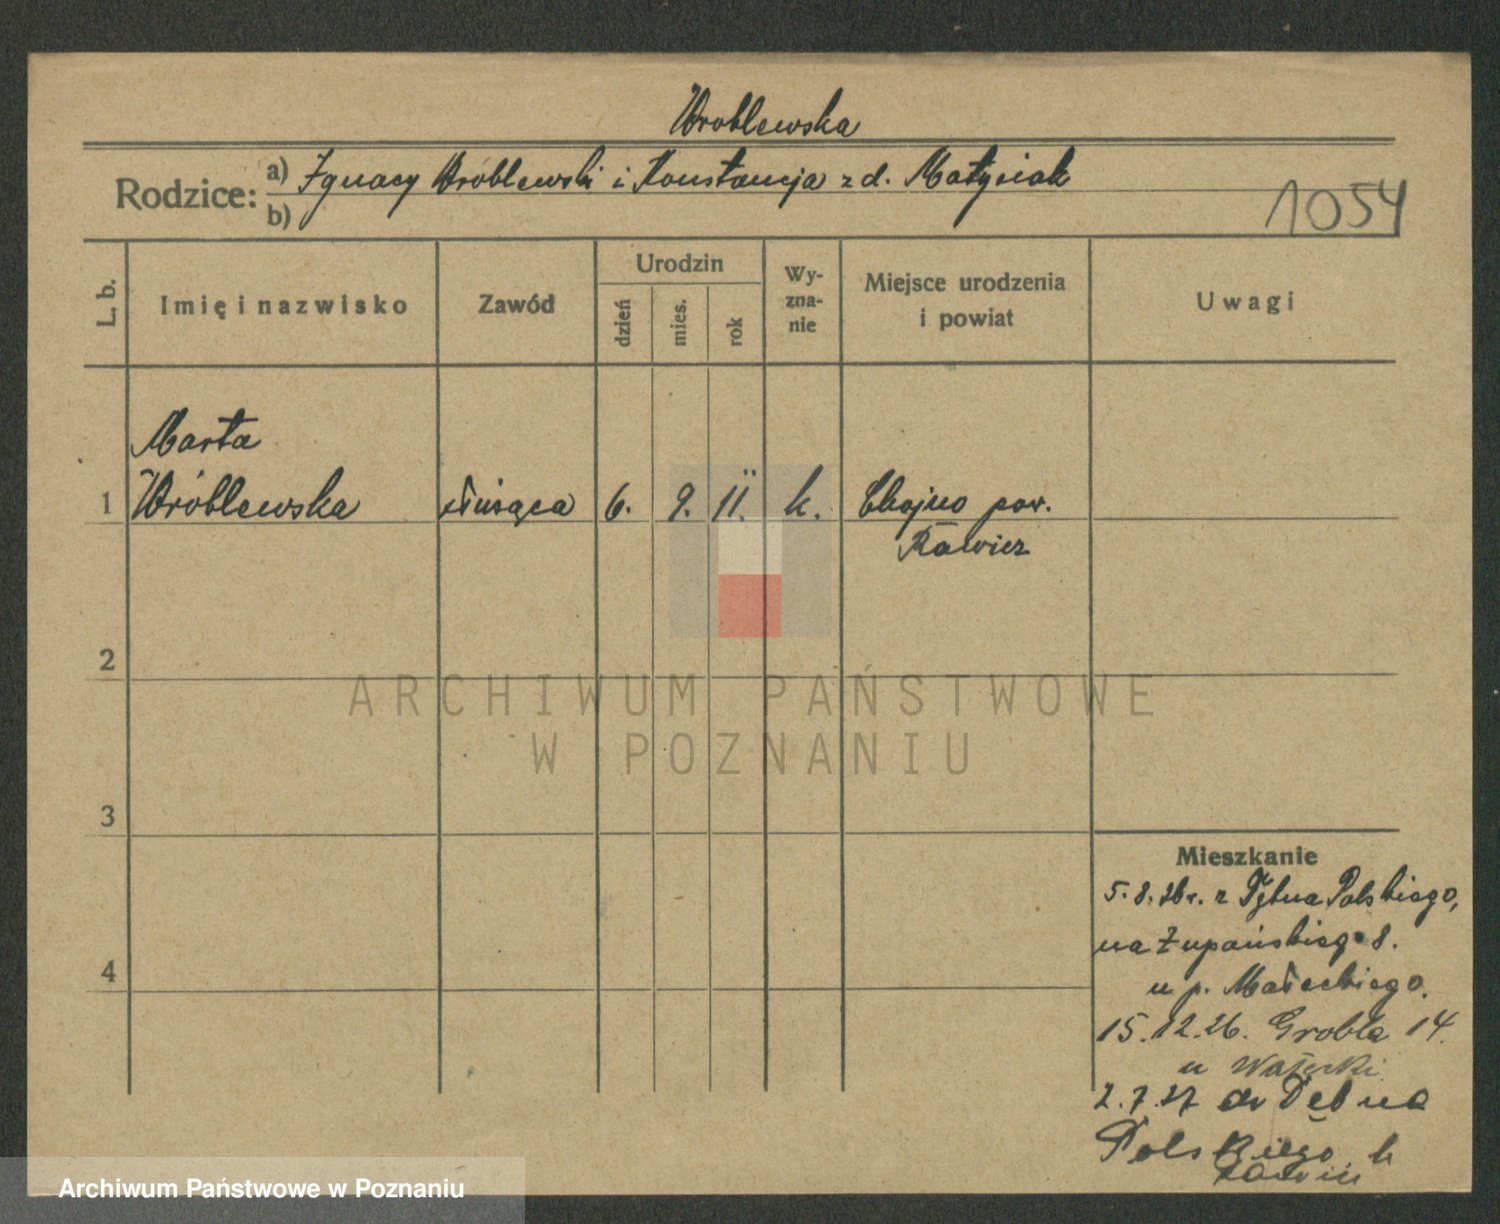 Wroblewska
Rodzice: a) Ignacy Wróblewski i Konstancja z d. Matysiak
b)
1054
L. b.
Imię i nazwisko
Zawód
Urodzin
dzień
mies.
rok
Wy-
zna-
nie
Miejsce urodzenia
i powiat
Uwagi
Marta
1 Wróblewska służąca 6. 9. 11. k. Chojno pow.
Rawicz
2
ARCHIWUM PAŃSTWOWE
W POZNANIU
3
Mieszkanie
5.8.26r. z Dębna Polskiego,
na Żupańskiego 8.
u p. Małeckiego.
4
15.12.26. Grobla 14.
u
2.7.27 do Dębna
Polskiego
Rawicz
Archiwum Państwowe w Poznaniu